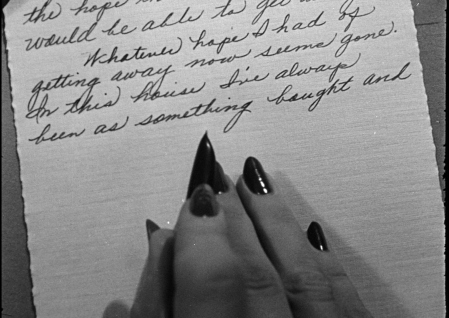 the hope
would be able to get
Whatever hope I had of
getting away now seems gone.
In this house I've always
been as something bought and